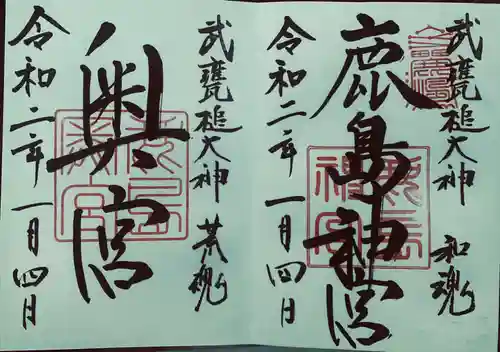 武甕槌大神 和魂
鹿島神宮
令和二年 一月四日
武甕槌大神 荒魂
奥宮
令和二年 一月四日